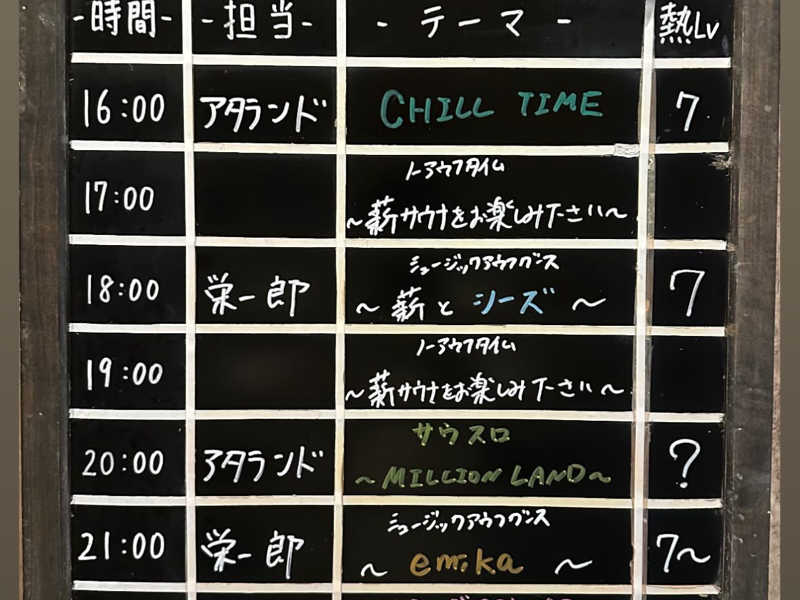 -時間- -担当- - テーマ - 熱Lv
16:00 アタランド CHILL TIME 7
ノーアウフタイム
17:00 ～薪サウナをお楽しみ下さい～
ミュージックアウフグース
18:00 栄一郎 ～ 薪と シーズ ～ 7
ノーアウフタイム
19:00 ～薪サウナをお楽しみ下さい～
サウスロ
20:00 アタランド ～MILLION LAND～ ?
ミュージックアウフグース
21:00 栄一郎 ～ emika ～ 7～